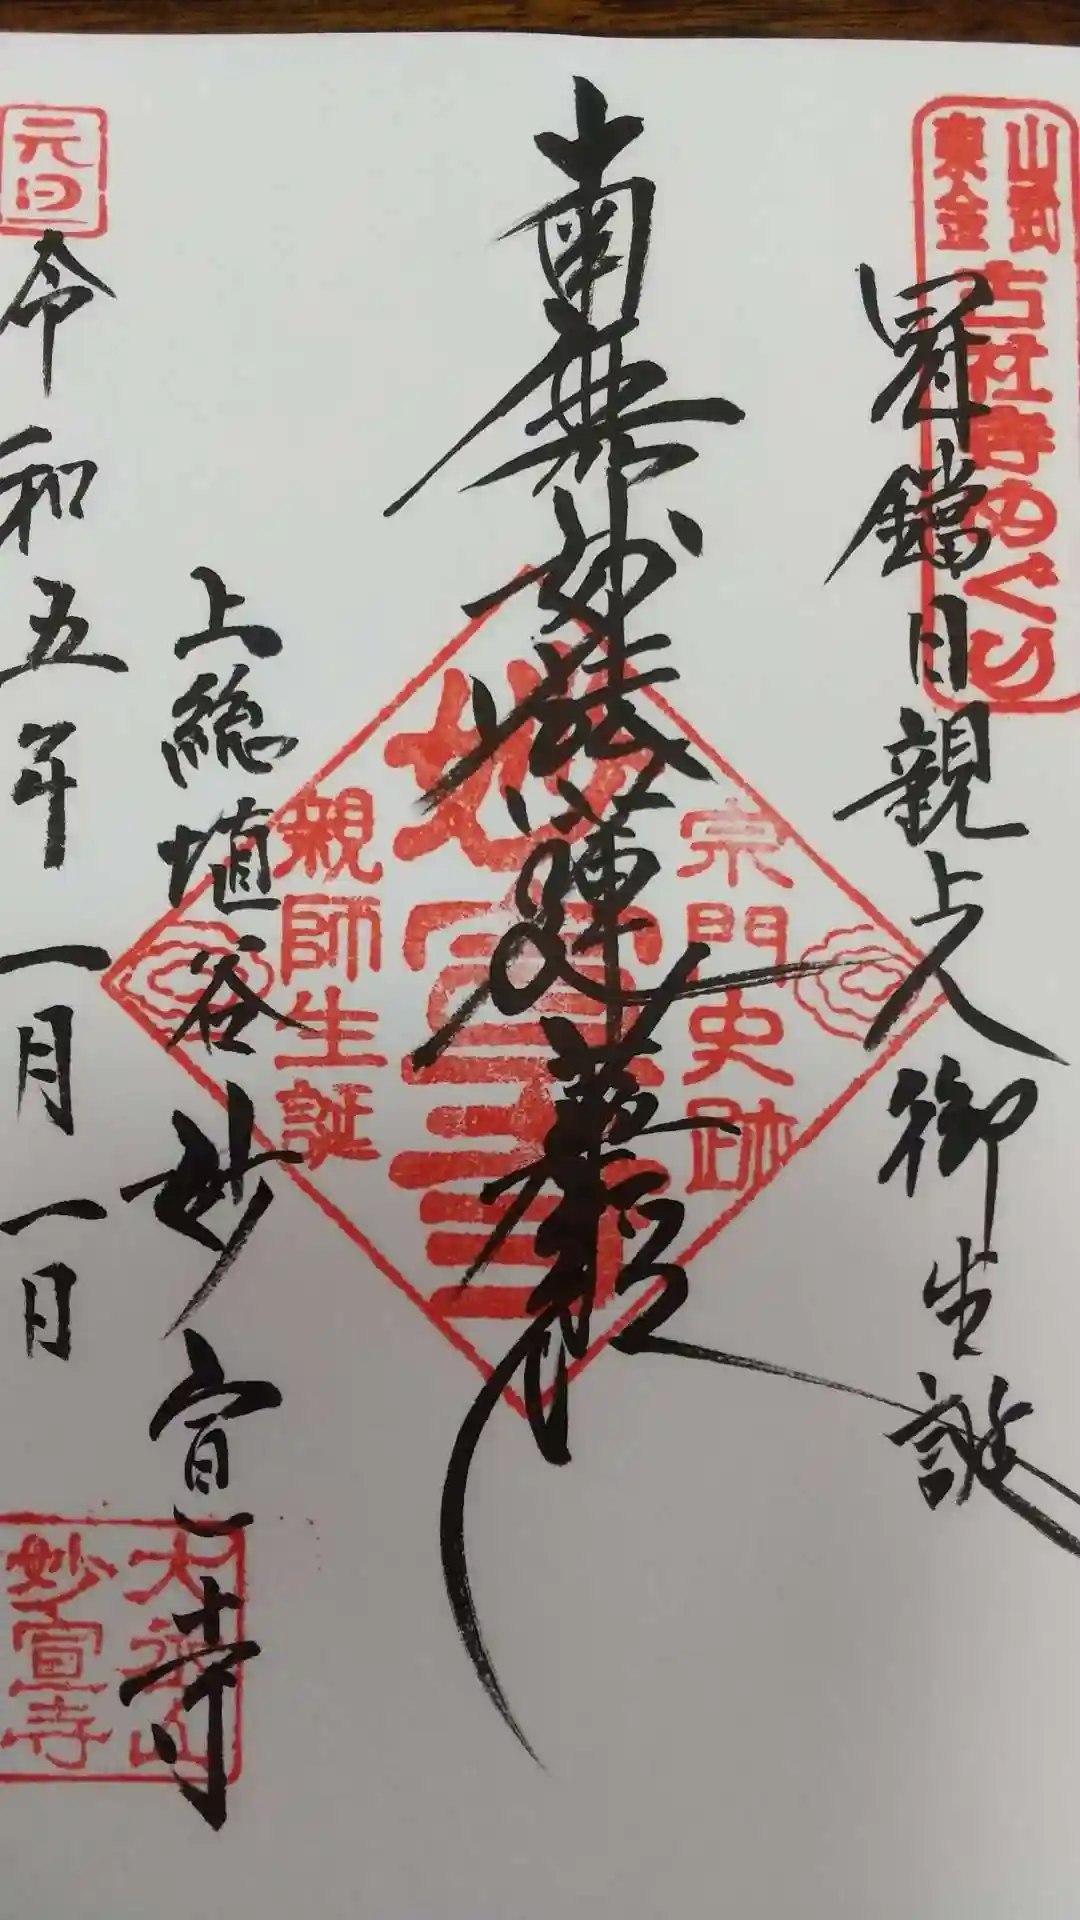 山武
東金
古社寺めぐり
冠鐺日親上人御生誕
南無妙法蓮華経
宗門史跡
妙宣寺
親師生誕
上総埴谷妙宣寺
元旦
令和五年一月一日
妙宣寺